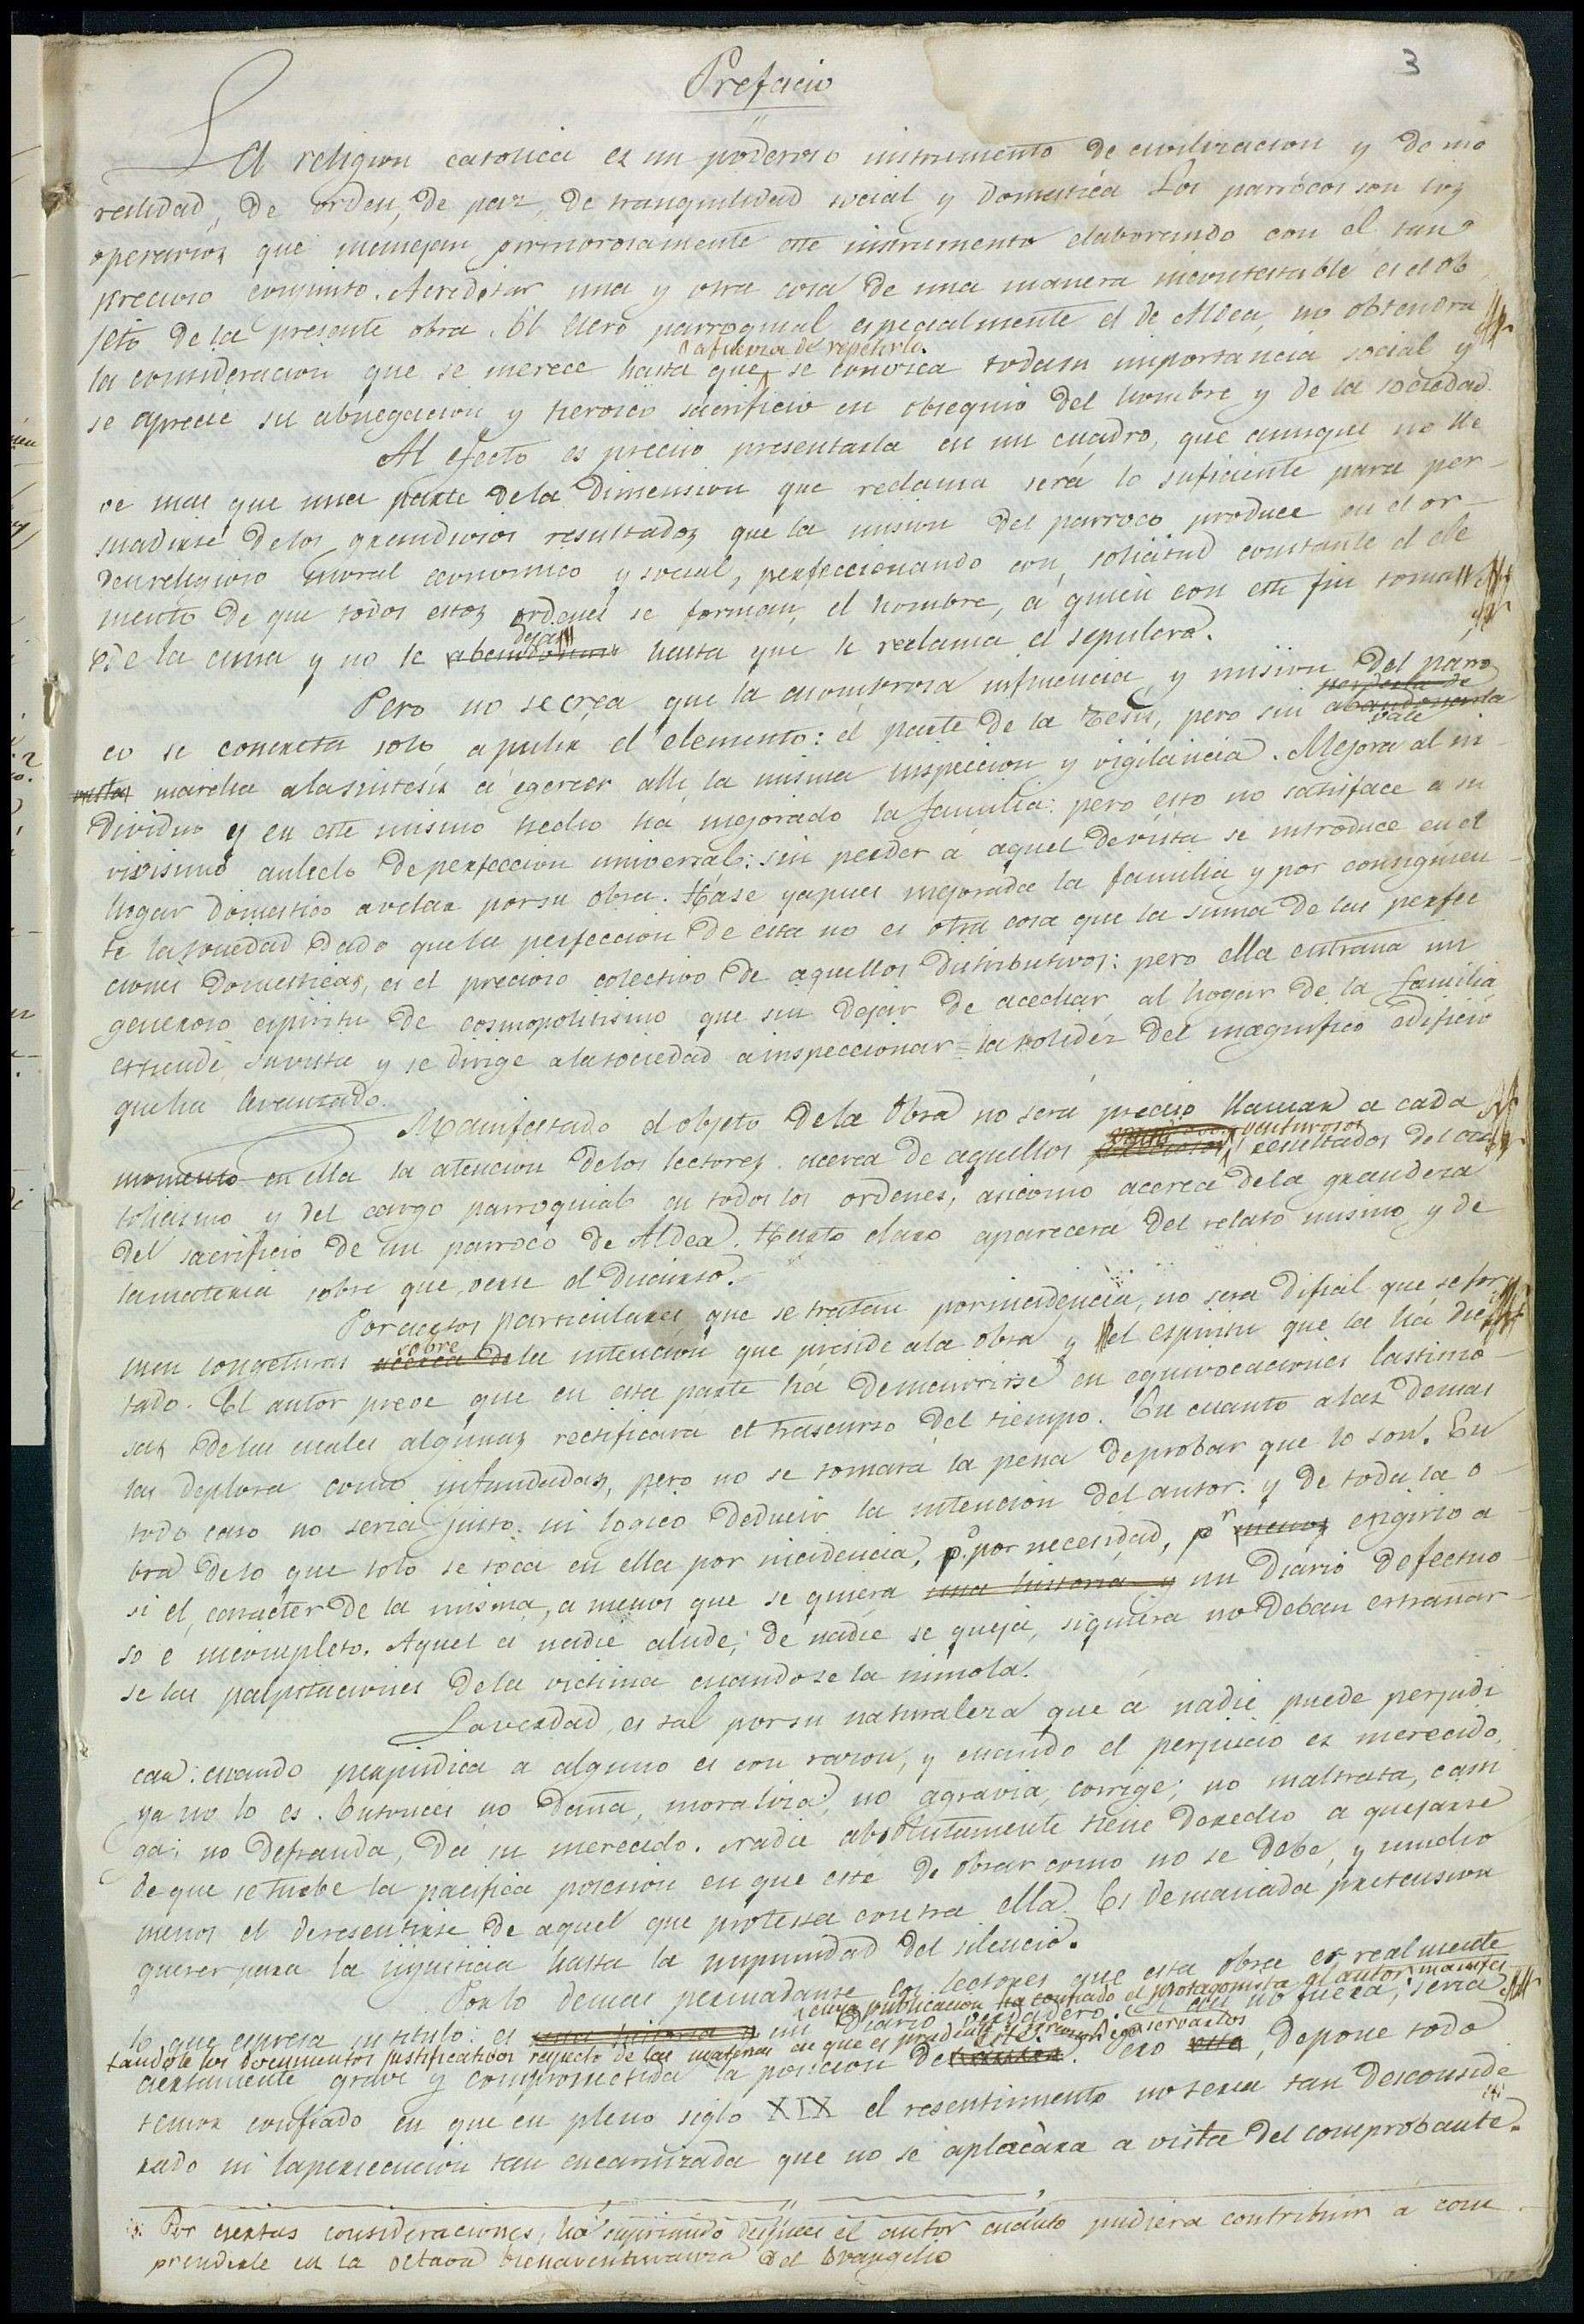 3
Prefacio
La religion catolica es un poderoso instrumento de civilizacion y de mo
ralidad, de orden, de paz, de tranquilidad social y domestica Los parrocos son los
operarios que manejan primorosamente este instrumento elaborando con el tan
precioso conjunto. Acreditar una y otra cosa de una manera incontestable es el ob
jeto de la presente obra. El clero parroquial especialmente el de Aldea, no obtendra
a fuerza de repetirlo.
la consideracion que se merece hasta que se conozca toda su importancia social y
se aprecie su abnegacion y heroico sacrificio en obsequio del hombre y de la sociedad.
Al efecto es preciso presentarla en un cuadro, que aunque no lle
ve mas que una parte de la dimension que reclama será lo suficiente para per-
suadirse de los grandiosos resultados que la mision del parroco produce en el or-
den religioso moral economico y social, perfeccionando con solicitud constante el ele
mento de que todos estos ordenes se forman, el hombre, á quien con este fin toma
dejar
de la cuna y no le abandona hasta que le reclama el sepulcro.
Pero no se crea que la asombrosa influencia y mision del parro
perderla de
co se concreta solo a pulir el elemento: él parte de la tesis, pero sin abandonarla
vale
vista marcha a la sintesis á egercer alli la misma inspeccion y vigilancia. Mejora al in-
dividuo y en este mismo hecho há mejorado la familia: pero esto no satisface a su
vivisimo anhelo de perfeccion universal: sin perder á aquel de vista se introduce en el
hogar domestico a velar por su obra. Háse ya pues mejorada la familia y por consiguien-
te la sociedad dado que la perfeccion de esta no es otra cosa que la suma de las perfec
ciones domesticas, es el precioso colectivo de aquellos distributivos: pero ella entraña un
generoso espiritu de cosmopolitismo que sin dejar de acechar al hogar de la familia
estiende su vista y se dirige a la sociedad a inspeccionar la solidéz del magnifico edificio
que ha levantado.
Manifestado el objeto de la Obra no será preciso llamar a cada
venturosos
momento en ella la atencion de los lectores acerca de aquellos resultados del ca
tolicismo y del cargo parroquial en todos los ordenes, asi como acerca de la grandeza
del sacrificio de un parroco de Aldea. Harto claro aparecerá del relato mismo y de
la materia sobre que verse el discurso.
Por acesos particulares que se tratan por incidencia, no sera dificil que se for
sobre
men congeturas acerca de la intencion que preside a la obra y el espiritu que la há dic
tado. El autor preve que en esta parte há de incurrirse en equivocaciones lastimo-
sas de las cuales algunas rectificara el trascurso del tiempo. En cuanto a las demas
las deplora como infundadas, pero no se tomará la pena de probar que lo son. En
todo caso no seria justo ni logico deducir la intencion del autor y de toda la o-
bra de lo que solo se toca en ella por incidencia, pº por necesidad, pr menos exigirlo a-
si el caracter de la misma, a menos que se quiera una historia y un Diario defectuo-
so e incompleto. Aquel á nadie alude; de nadie se queja, siquiera no deban estrañar-
se las palpitaciones de la victima cuando se la inmola.
La verdad, es tal por su naturaleza que á nadie puede perjudi
car: cuando perjudica a alguno es con razon, y cuando el perjuicio es merecido,
ya no lo es. Entonces no daña, moraliza; no agravia, corrige; no maltrata, casti
ga; no defrauda, dá su merecido. Nadie absolutamente tiene derecho a quejarse
de que se turbe la pacifica posesion en que está de obrar como no se debe, y mucho
menos el de resentirse de aquel que protesta contra ella. Es demasiada pretension
querer para la injusticia hasta la impunidad del silencio.
Por lo demas persuadanse los lectores que esta obra es realmente
cuya publicacion ha confiado el protagonista al autor manifes
lo que espresa su titulo: es una historia y un Diario verdadero. Si asi no fuera, seria
tandole los documentos justificativos respecto de las materias en que es prudente conservarlos
ciertamente grave y comprometida la posicion del autor. Pero este, depone todo
temor confiado en que en pleno siglo XIX el resentimiento no seria tan desconside
rado ni la persecucion tan encarnizada que no se aplacára a vista del comprobante.
Por ciertas consideraciones, ha suprimido despues el autor cuanto pudiera contribuir á com-
prenderle en la octava bienaventuranza del Evangelio